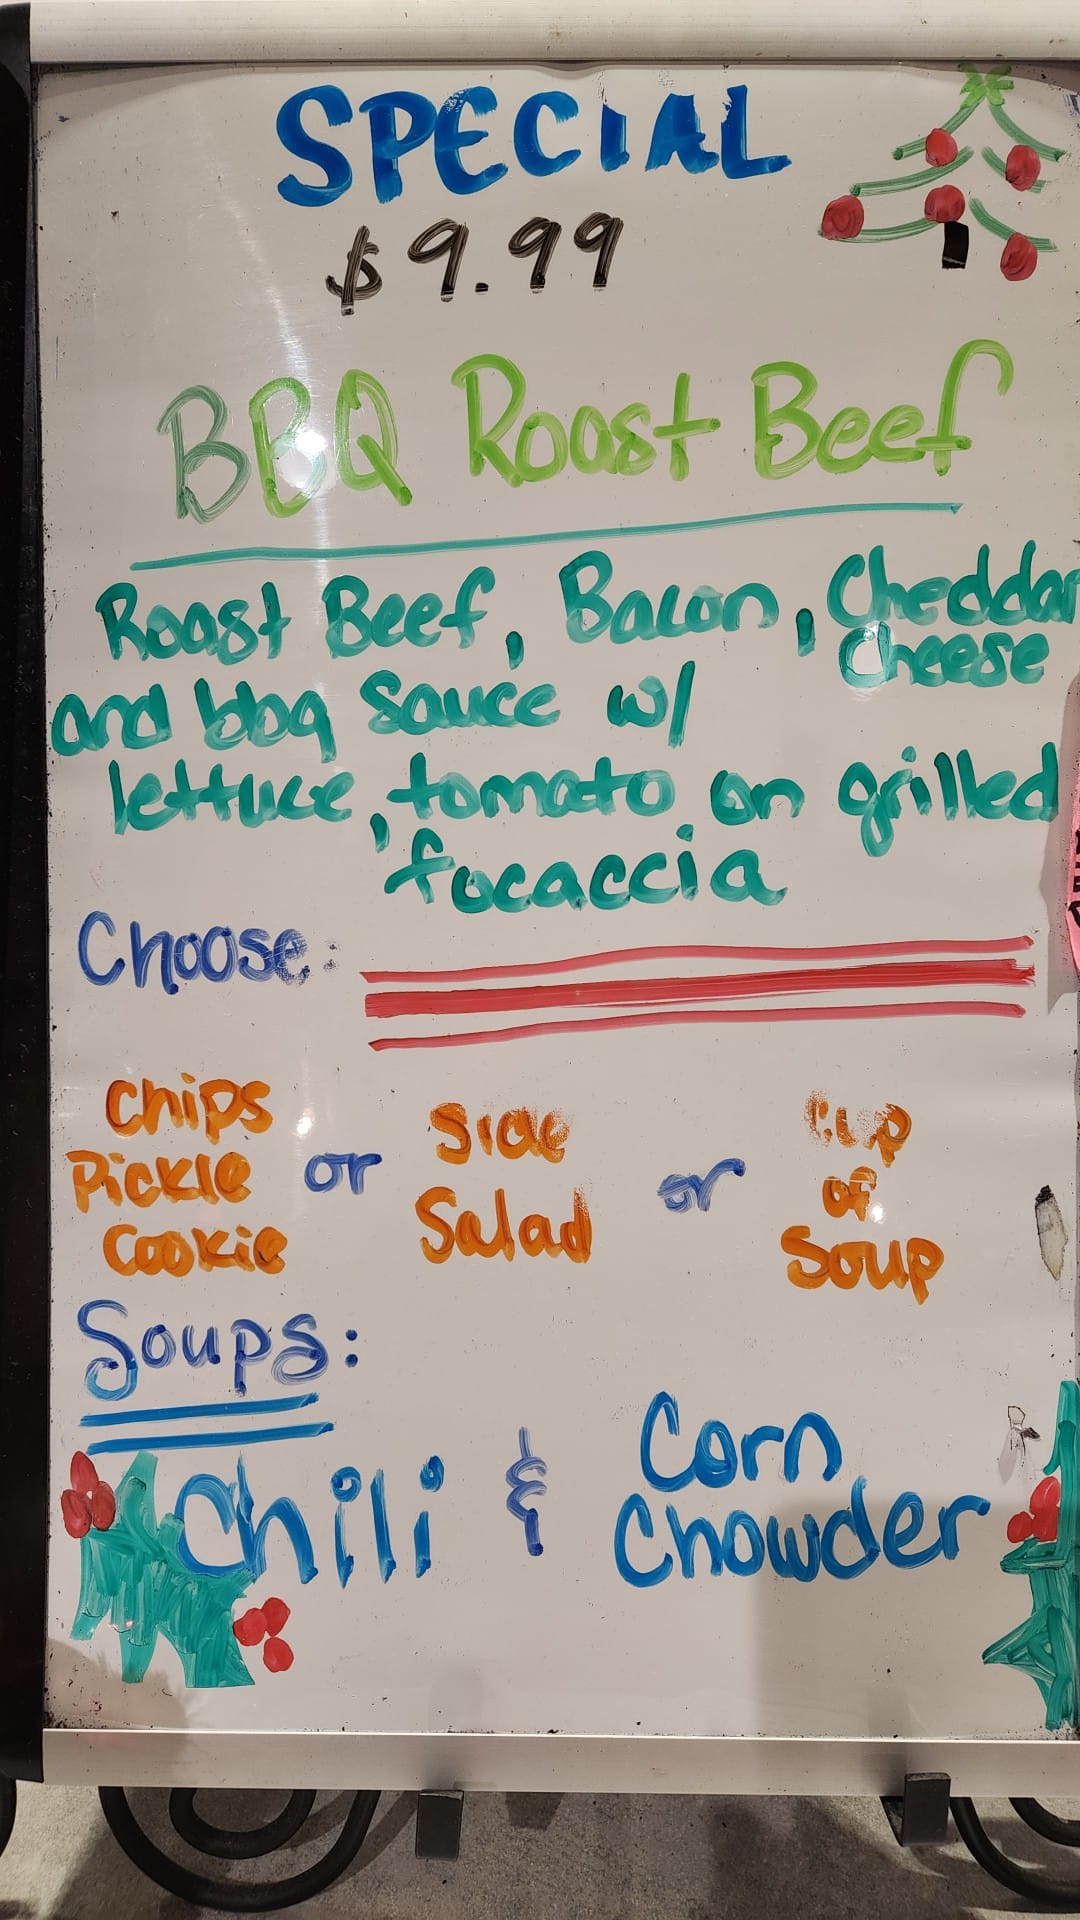 SPECIAL
$9.99
BBQ Roast Beef
Roast Beef, Bacon, Cheddar
cheese
and bbq sauce w/
lettuce, tomato on grilled
focaccia
Choose:
Chips
Pickle
Cookie
or
Side
Salad
or
Cup
of
Soup
Soups:
Chili & Corn
Chowder